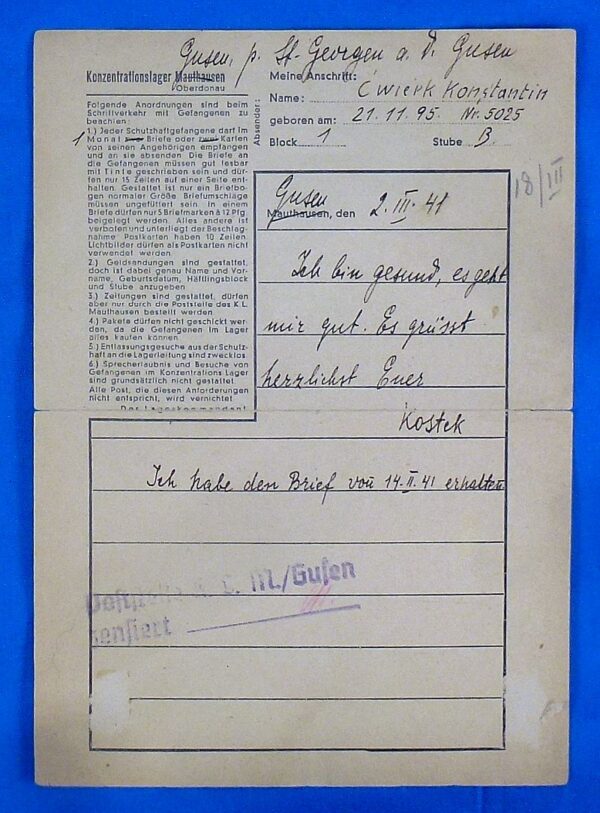 Gusen, p. St. Georgen a. d. Gusen
Konzentrationslager Mauthausen
Oberdonau
Folgende Anordnungen sind beim
Schriftverkehr mit Gefangenen zu
beachten:
1.) Jeder Schutzhaftgefangene darf im
1 Monat Briefe oder Karten
von seinen Angehörigen empfangen
und an sie absenden. Die Briefe an
die Gefangenen müssen gut lesbar
mit Tinte geschrieben sein und dür-
fen nur 15 Zeilen auf einer Seite ent-
halten. Gestattet ist nur ein Briefbo-
gen normaler Größe Briefumschläge
müssen ungefüttert sein. In einem
Briefe dürfen nur 5 Briefmarken à 12 Pfg.
beigelegt werden. Alles andere ist
verboten und unterliegt der Beschlag-
nahme Postkarten haben 10 Zeilen.
Lichtbilder dürfen als Postkarten nicht
verwendet werden.
2.) Geldsendungen sind gestattet,
doch ist dabei genau Name und Vor-
name, Geburtsdatum, Häftlingsblock
und Stube anzugeben
3.) Zeitungen sind gestattet, dürfen
aber nur durch die Poststelle des K.L.
Mauthausen bestellt werden
4.) Pakete dürfen nicht geschickt wer-
den, da die Gefangenen im Lager
alles kaufen können.
5.) Entlassungsgesuche aus der Schutz-
haft an die Lagerleitung sind zwecklos.
6.) Sprecherlaubnis und Besuche von
Gefangenen im Konzentrations Lager
sind grundsätzlich nicht gestattet.
Alle Post, die diesen Anforderungen
nicht entspricht, wird vernichtet
Der Lagerkommandant
Absender:
Meine Anschrift:
Name: Ćwierk Konstantin
geboren am: 21.11.95. Nr. 5025
Block 1 Stube B.
18/III
Gusen
Mauthausen, den 2.III.41
Ich bin gesund, es geht
mir gut. Es grüsst
herzlichst Euer
Kostek
Ich habe den Brief von 14.II.41 erhalten
Poststelle K. L. M./Gusen
zensiert